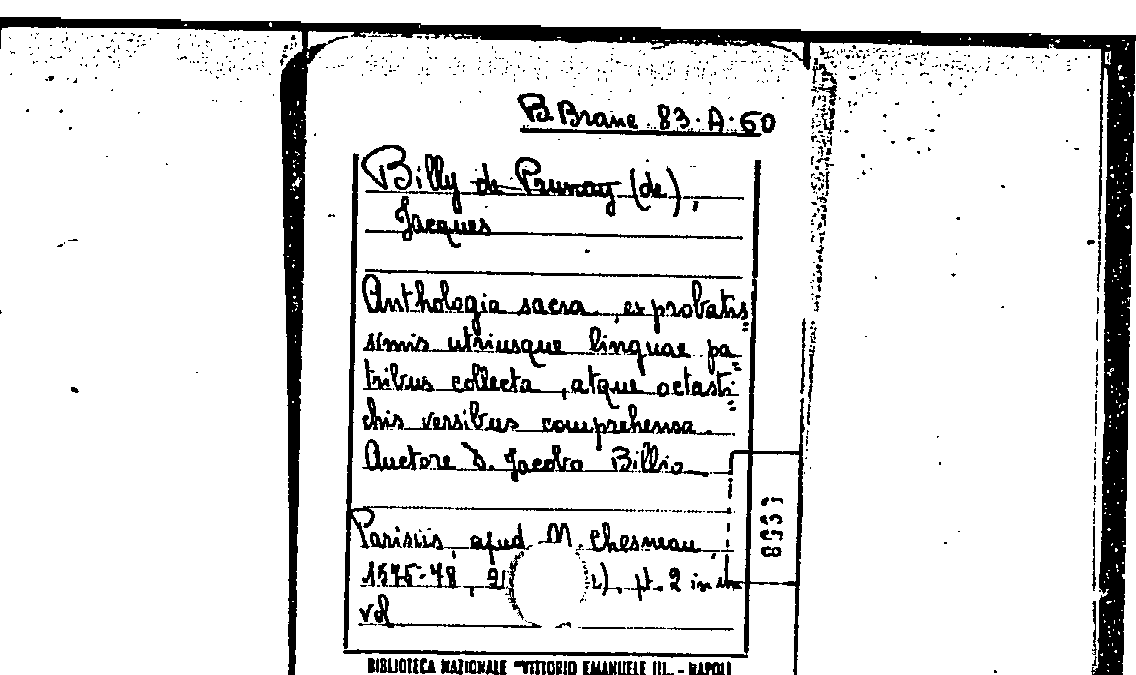 B. Branc. 83.A.60
Billy de Prunay (de),
Jacques
Anthologia sacra, ex probatis
simis utriusque linguae pa
tribus collecta, atque octasti
chis versibus comprehensa.
Auctore D. Jacobo Billio
Parisiis, apud M. Chesneau,
1575-78, pt. 2 in un
vol
BIBLIOTECA NAZIONALE "VITTORIO EMANUELE III. - NAPOLI